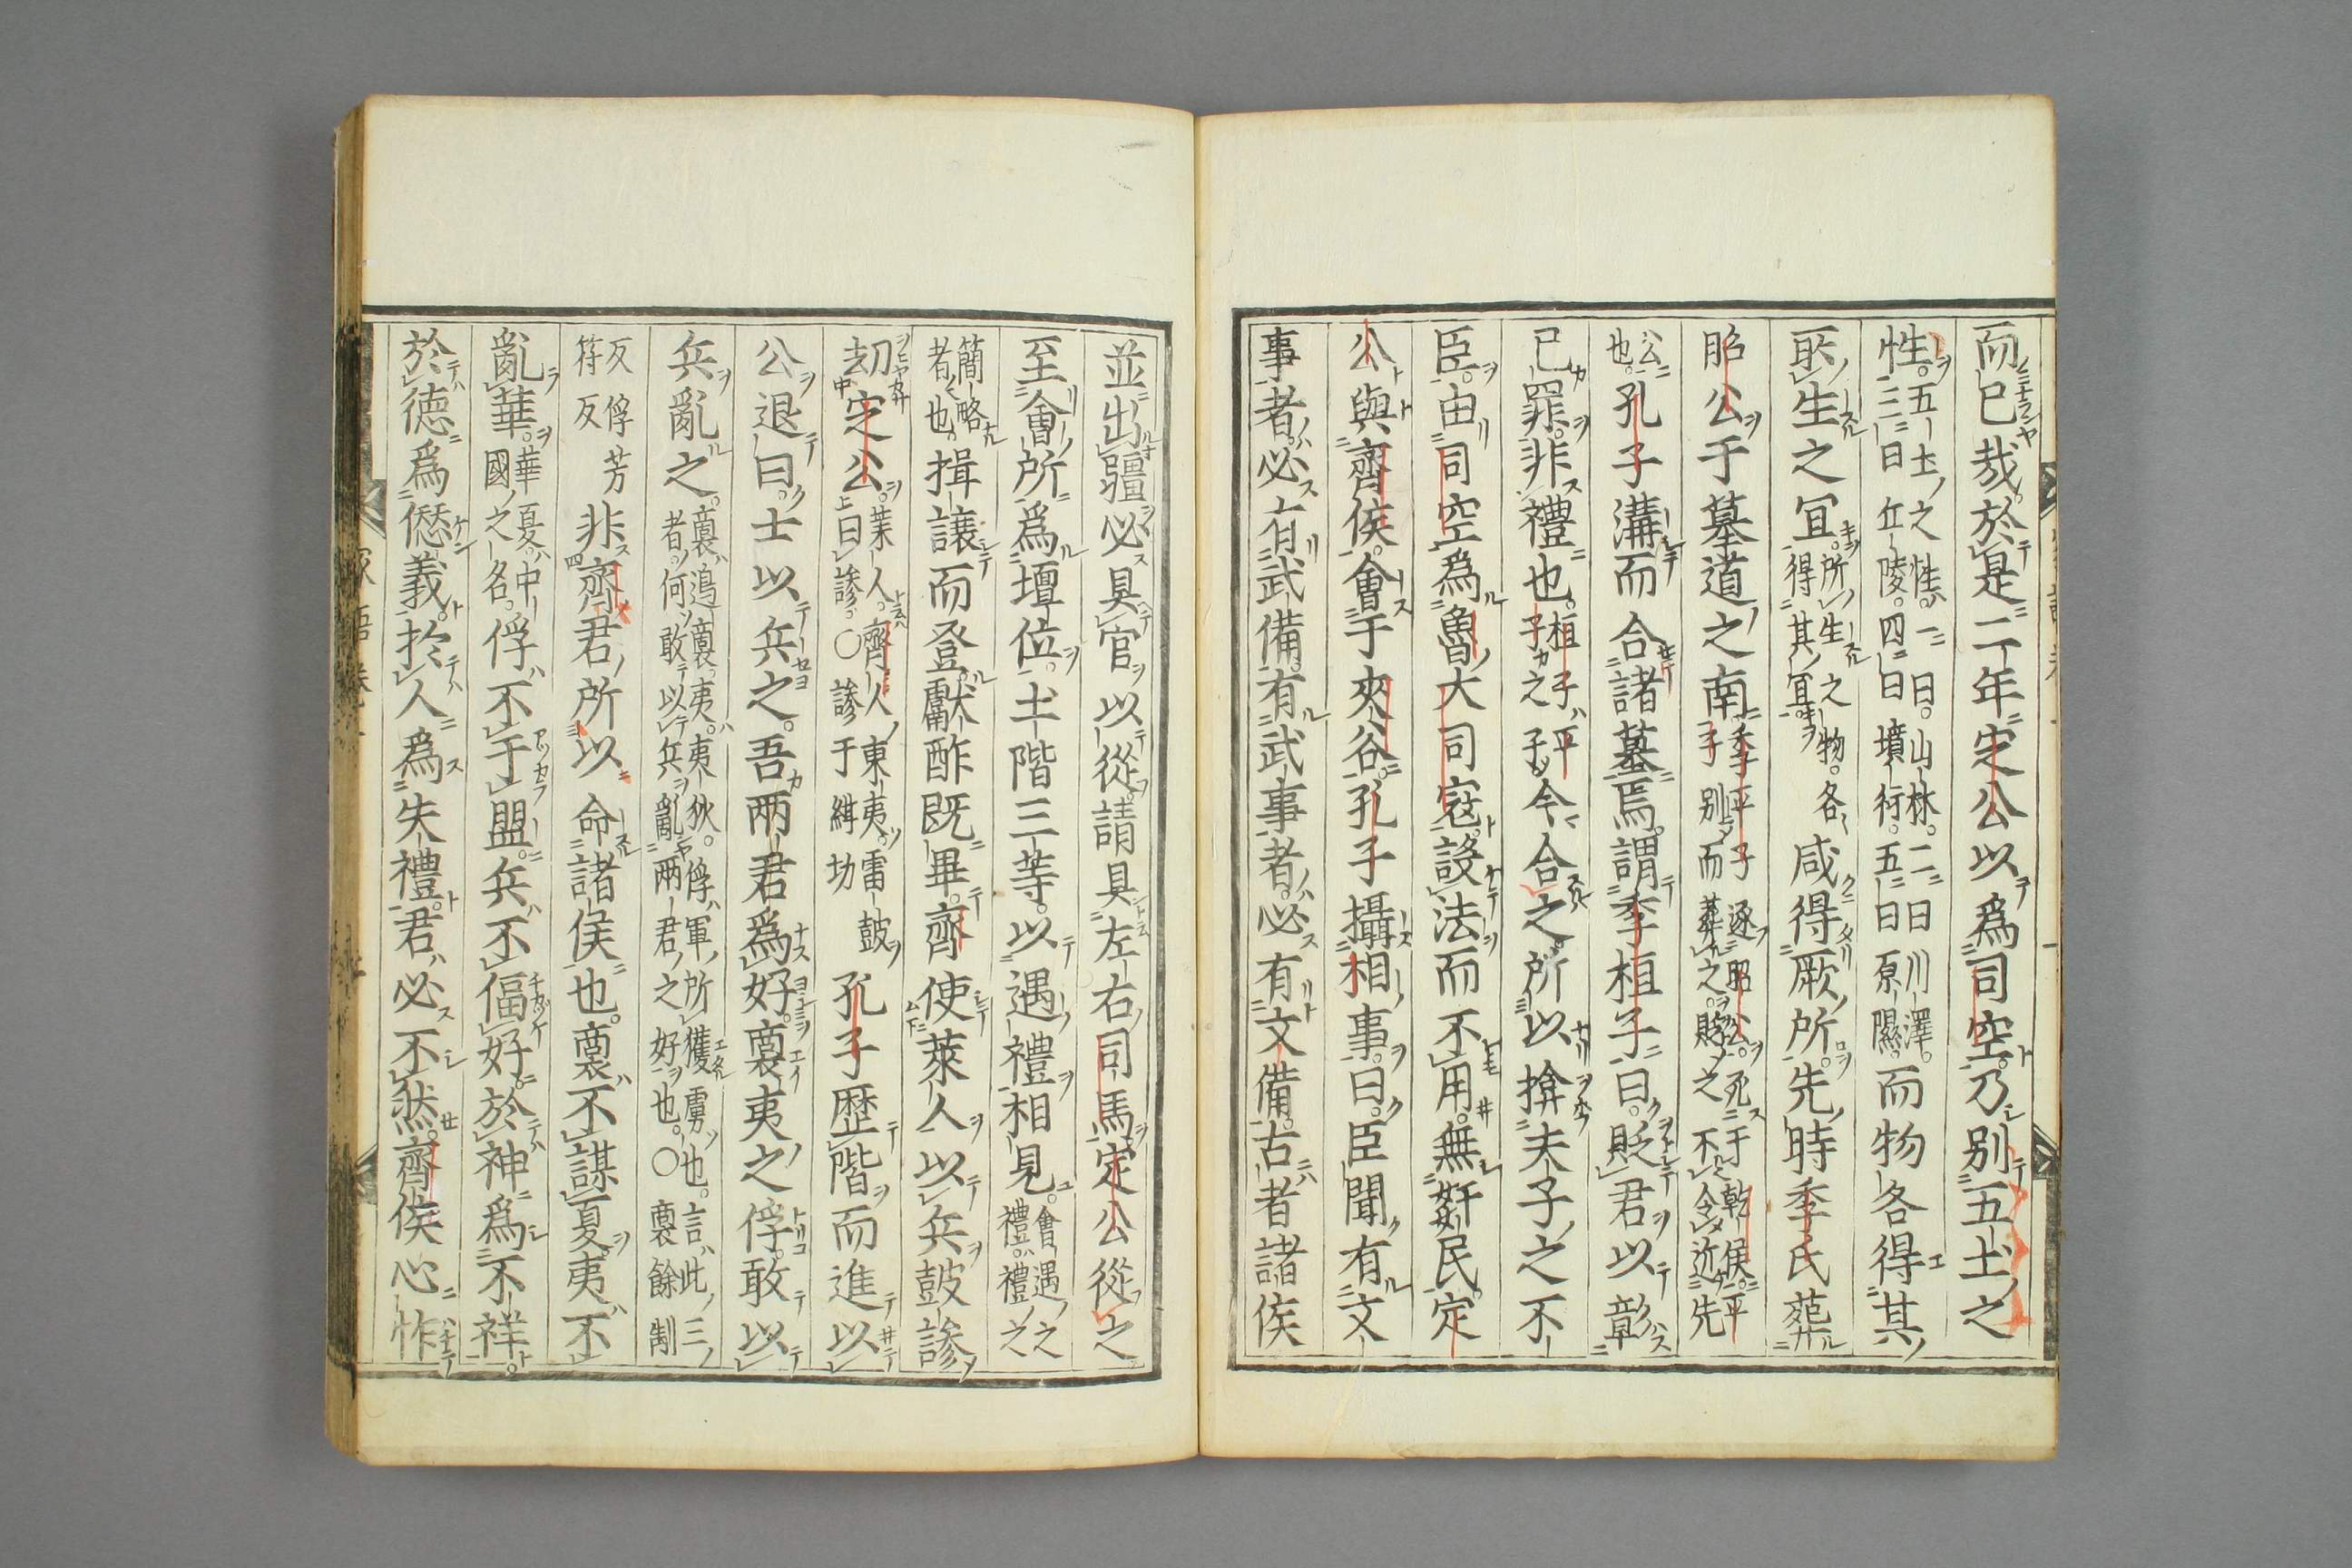 而已哉於是二年定公以爲司空乃別五土之
性五土之性一曰山林二曰川澤三曰丘陵四曰墳衍五曰原隰而物各得其
所生之冝所生之物各得其冝咸得厥所先時季氏葬
昭公于墓道之南季平子逐昭公死于乾侯平子別而葬之貶之不令近先
公也孔子溝而合諸墓焉謂季桓子曰貶君以彰
己罪非禮也桓子平子之子今合之所以揜夫子之不
臣由司空爲魯大司寇設法而不用無奸民定
公與齊侯會于夾谷孔子攝相事曰臣聞有文
事者必有武備有武事者必有文備古者諸侯
並出疆必具官以從請具左右司馬定公從之
至會所爲壇位土階三等以遇禮相見會遇之禮禮之
簡略者也揖讓而登獻酢既畢齊使萊人以兵鼓譟
刧定公萊人齊人東夷雷鼓曰譟孔子歷階而進以
公退曰士以兵之吾兩君爲好裔夷之俘敢以
兵亂之裔邊裔夷夷狄俘軍所獲虜也言此三者何敢以兵亂兩君之好也〇裔餘制
反俘芳符反非齊君所以命諸侯也裔不謀夏夷不
亂華華夏中國之名俘不干盟兵不偪好於神爲不祥
於德爲愆義於人爲失禮君必不然齊侯心怍